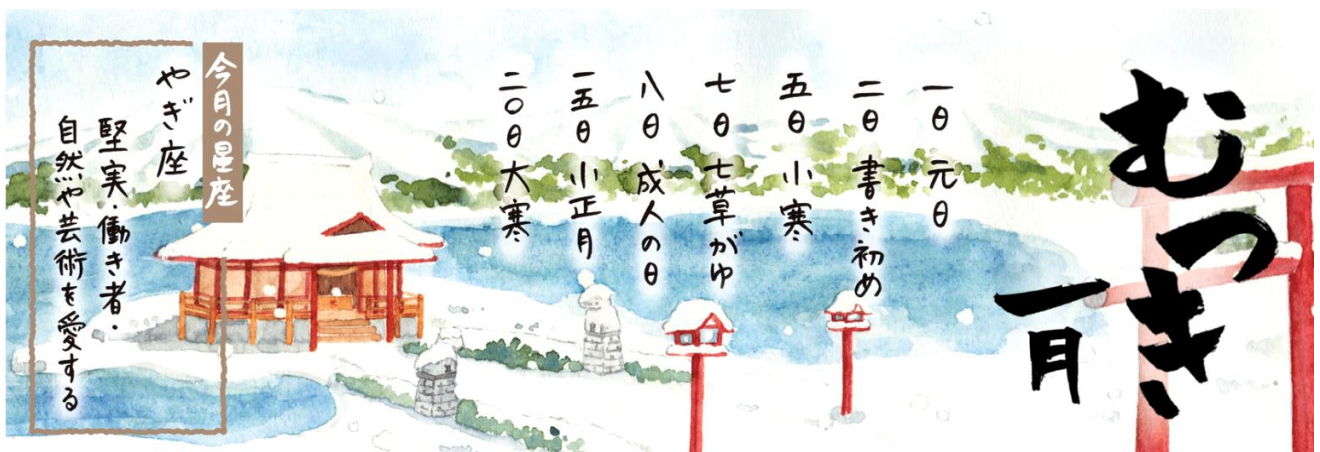 むつき
一月
一日 元日
二日 書き初め
五日 小寒
七日 七草がゆ
八日 成人の日
一五日 小正月
二〇日 大寒
今月の星座
やぎ座
堅実・働き者・
自然や芸術を愛する